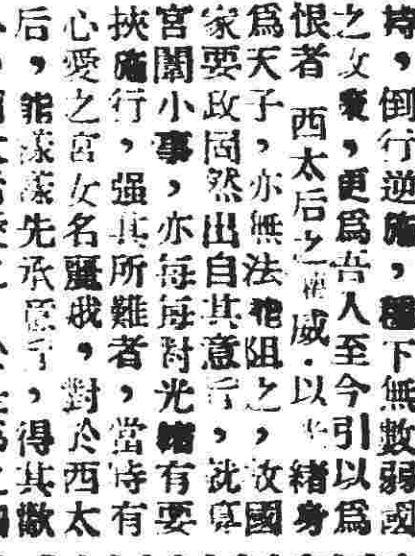 時，倒行逆施，種下無數弱國
之政策，更爲吾人至今引以爲
恨者　西太后之權威．以光緒身
爲天子，亦無法能阻之，故國
家要政固然出自其意旨，就算
宮闈小事，亦每每對光緒有要
挾施行，强其所難者，當時有
心愛之宮女名麗我，對於西太
后，能深深先承意旨，得其歡